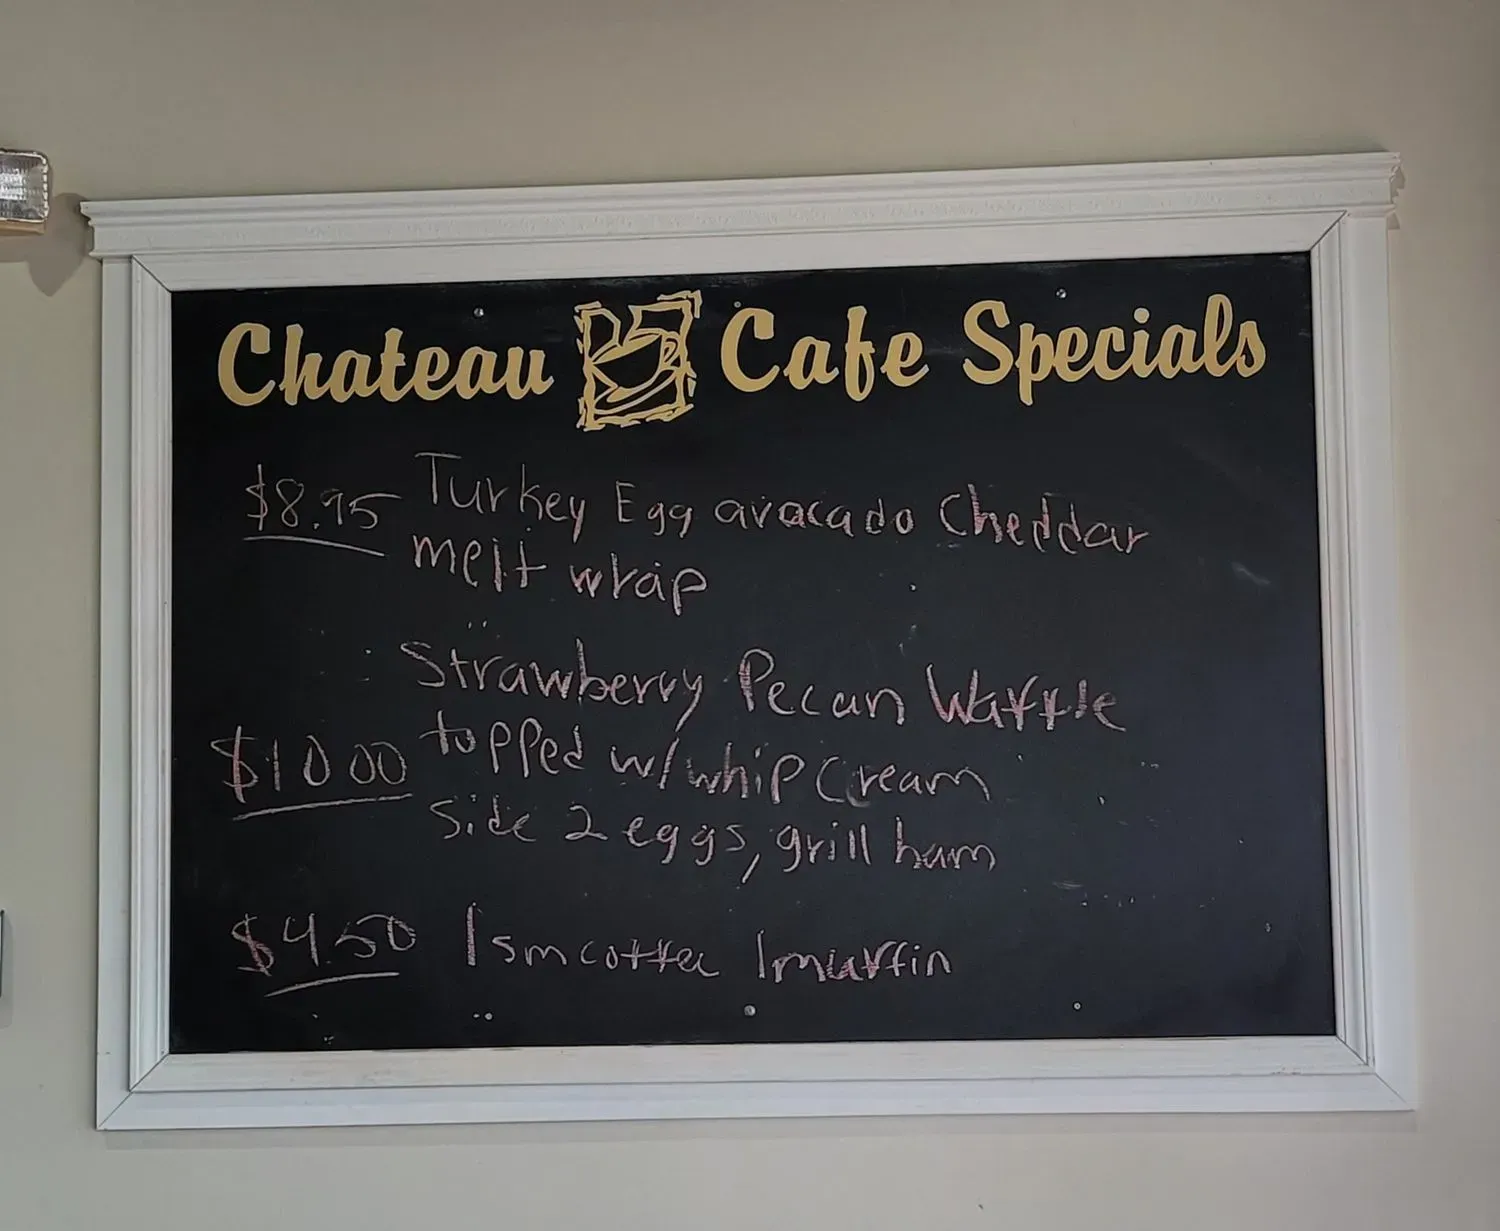 Chateau Cafe Specials
$8.95 Turkey Egg avocado Cheddar
melt wrap
Strawberry Pecan Waffle
$10.00 topped w/ whip Cream
Side 2 eggs, grill ham
$4.50 1 sm coffee 1 muffin